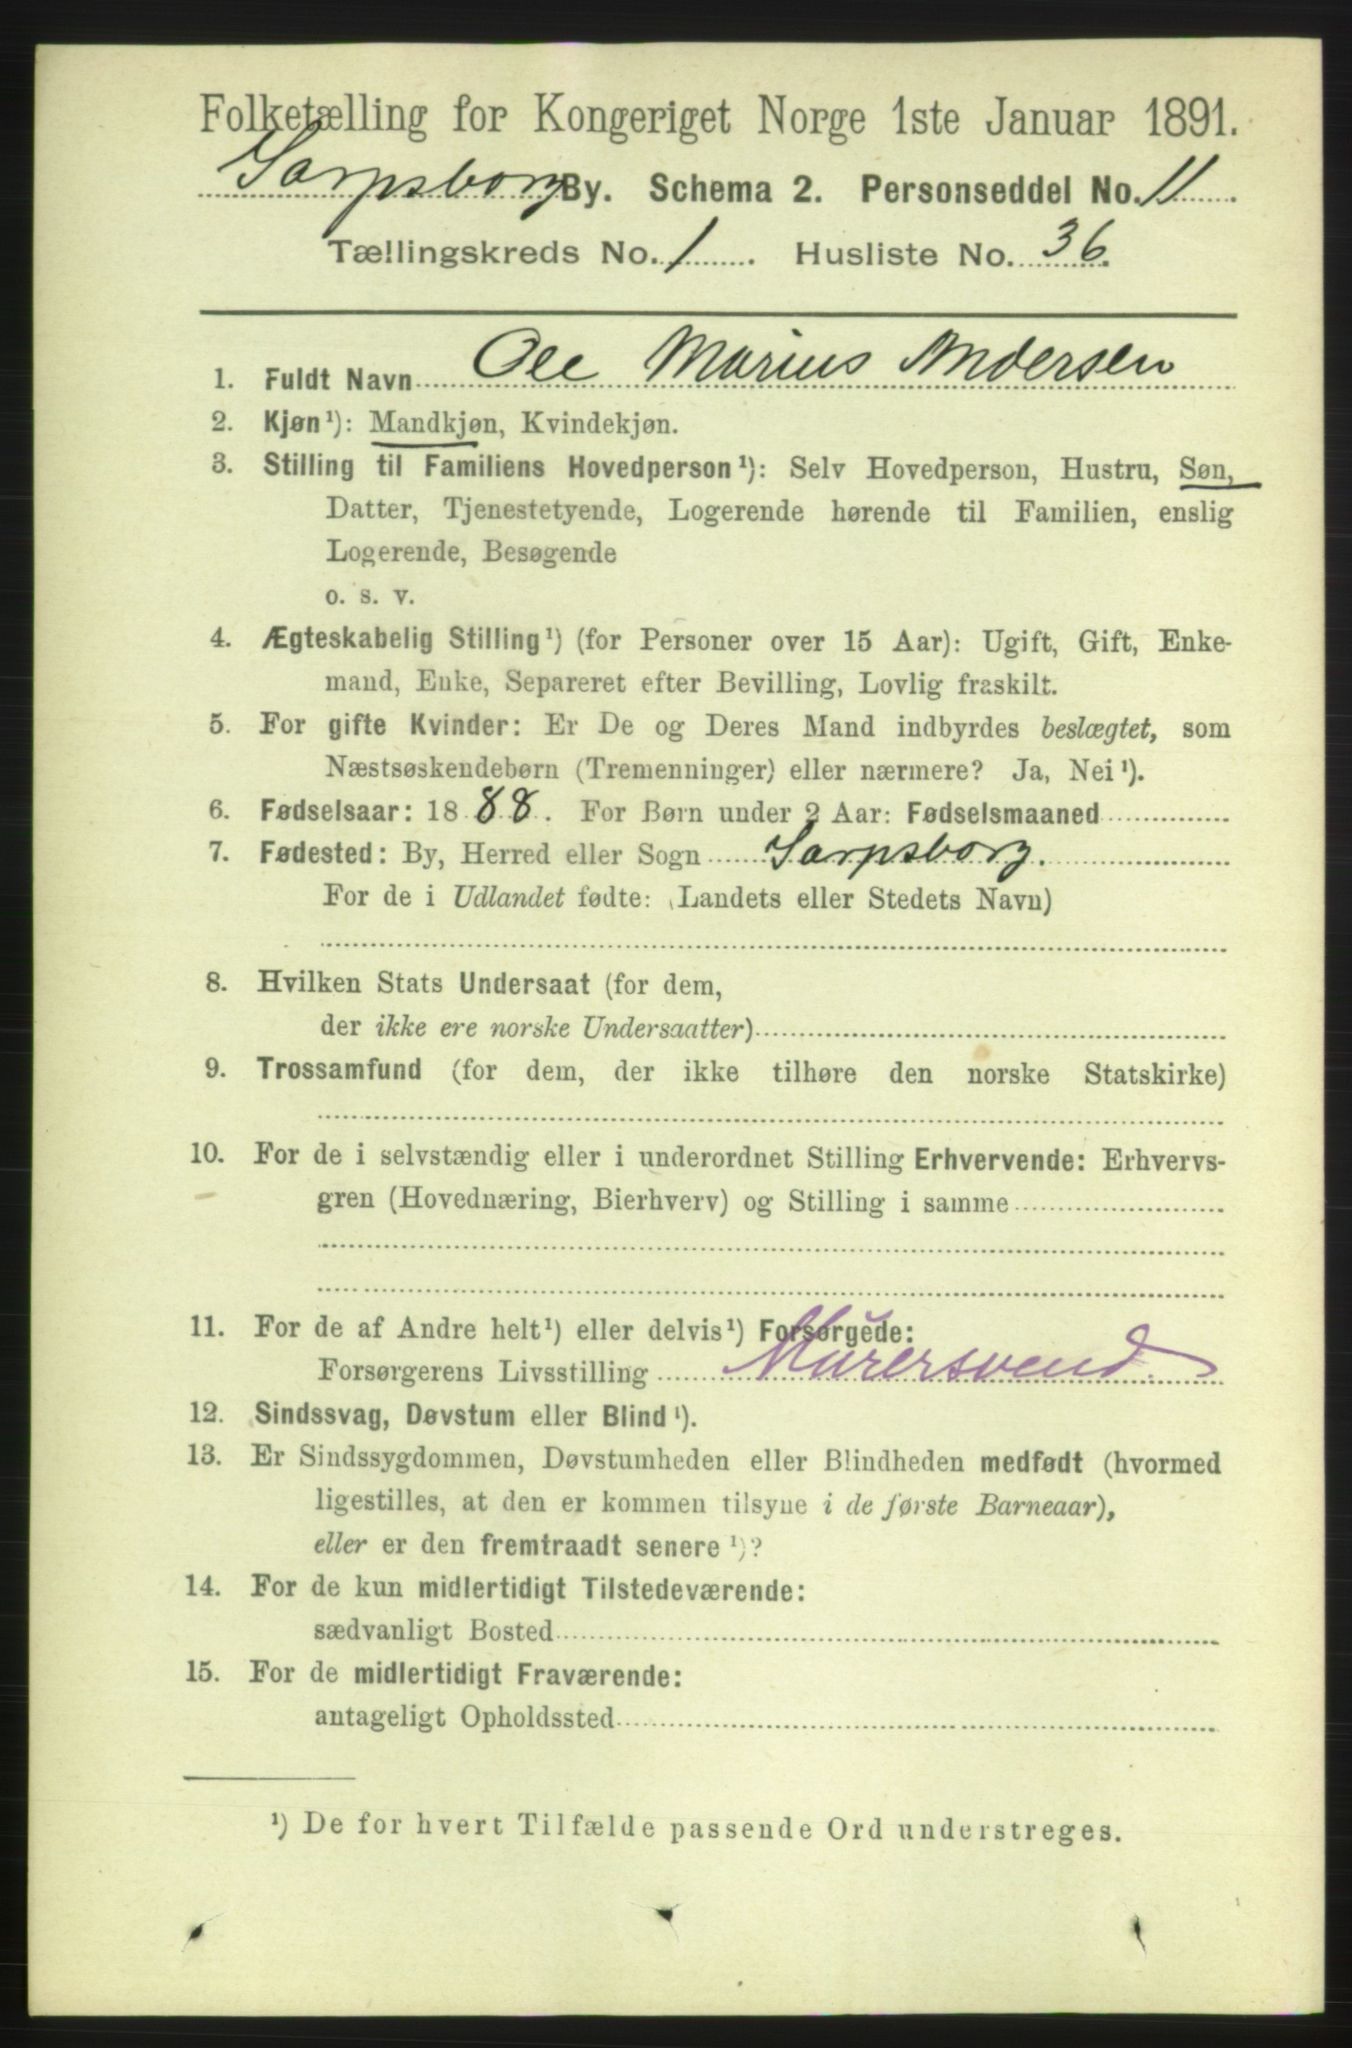 Folketælling for Kongeriget Norge 1ste Januar 1891.
Sarpsborg By. Schema 2. Personseddel No. 11
Tællingskreds No. 1. Husliste No. 36.
1. Fuldt Navn Ole Marius Andersen
2. Kjøn¹): Mandkjøn, Kvindekjøn.
3. Stilling til Familiens Hovedperson¹): Selv Hovedperson, Hustru, Søn,
Datter, Tjenestetyende, Logerende hørende til Familien, enslig
Logerende, Besøgende
o. s. v.
4. Ægteskabelig Stilling¹) (for Personer over 15 Aar): Ugift, Gift, Enke-
mand, Enke, Separeret efter Bevilling, Lovlig fraskilt.
5. For gifte Kvinder: Er De og Deres Mand indbyrdes beslægtet, som
Næstsøskendebørn (Tremenninger) eller nærmere? Ja, Nei¹).
6. Fødselsaar: 1888. For Børn under 2 Aar: Fødselsmaaned
7. Fødested: By, Herred eller Sogn Sarpsborg.
For de i Udlandet fødte: (Landets eller Stedets Navn)
8. Hvilken Stats Undersaat (for dem,
der ikke ere norske Undersaatter)
9. Trossamfund (for dem, der ikke tilhøre den norske Statskirke)
10. For de i selvstændig eller i underordnet Stilling Erhvervende: Erhvervs-
gren (Hovednæring, Bierhverv) og Stilling i samme
11. For de af Andre helt¹) eller delvis¹) Forsørgede:
Forsørgerens Livsstilling Murersvend
12. Sindssvag, Døvstum eller Blind¹).
13. Er Sindssygdommen, Døvstumheden eller Blindheden medfødt (hvormed
ligestilles, at den er kommen tilsyne i de første Barneaar),
eller er den fremtraadt senere¹)?
14. For de kun midlertidigt Tilstedeværende:
sædvanligt Bosted
15. For de midlertidigt Fraværende:
antageligt Opholdssted
¹) De for hvert Tilfælde passende Ord understreges.